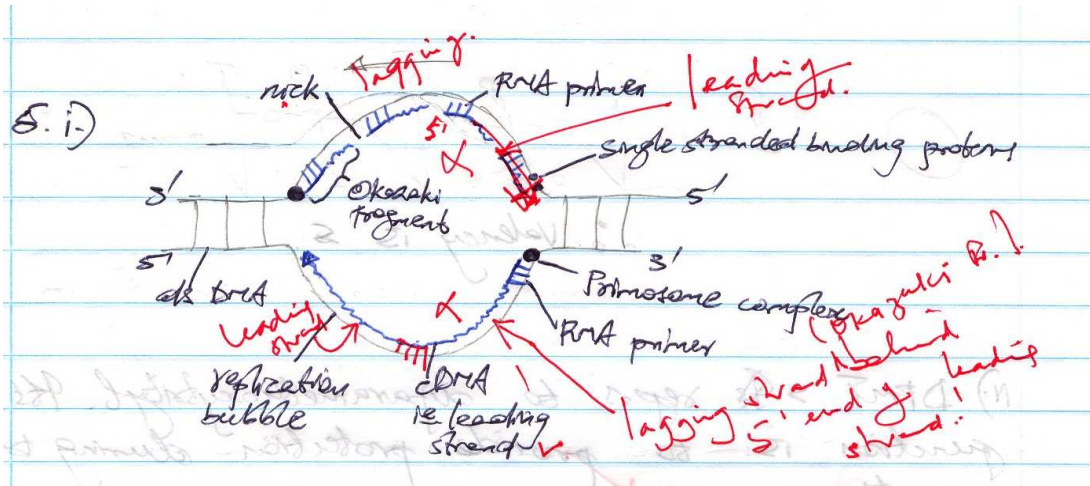 lagging.
nick
RNA primer
leading
strand.
5. i.)
5'
α
single stranded binding proteins
Okazaki
fragment
3'
5'
5'
3'
ds DNA
α
Primosome complex
RNA primer
leading
strand
replication
bubble
cDNA
ie leading
strand
(Okazaki fr.)
lagging strand behind
5' end of leading
strand!